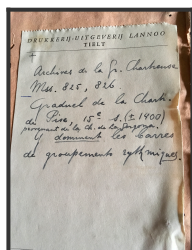 DRUKKERIJ-UITGEVERIJ LANNOO
TIELT
+
Archives de la Gr. Chartreuse
Mss. 825, 826.
Graduel de la Chart.
de Pise, 15e s. (± 1400)
provenant de la Ch. de la Gorgona.
Y donnent les barres
de groupements rythmiques.